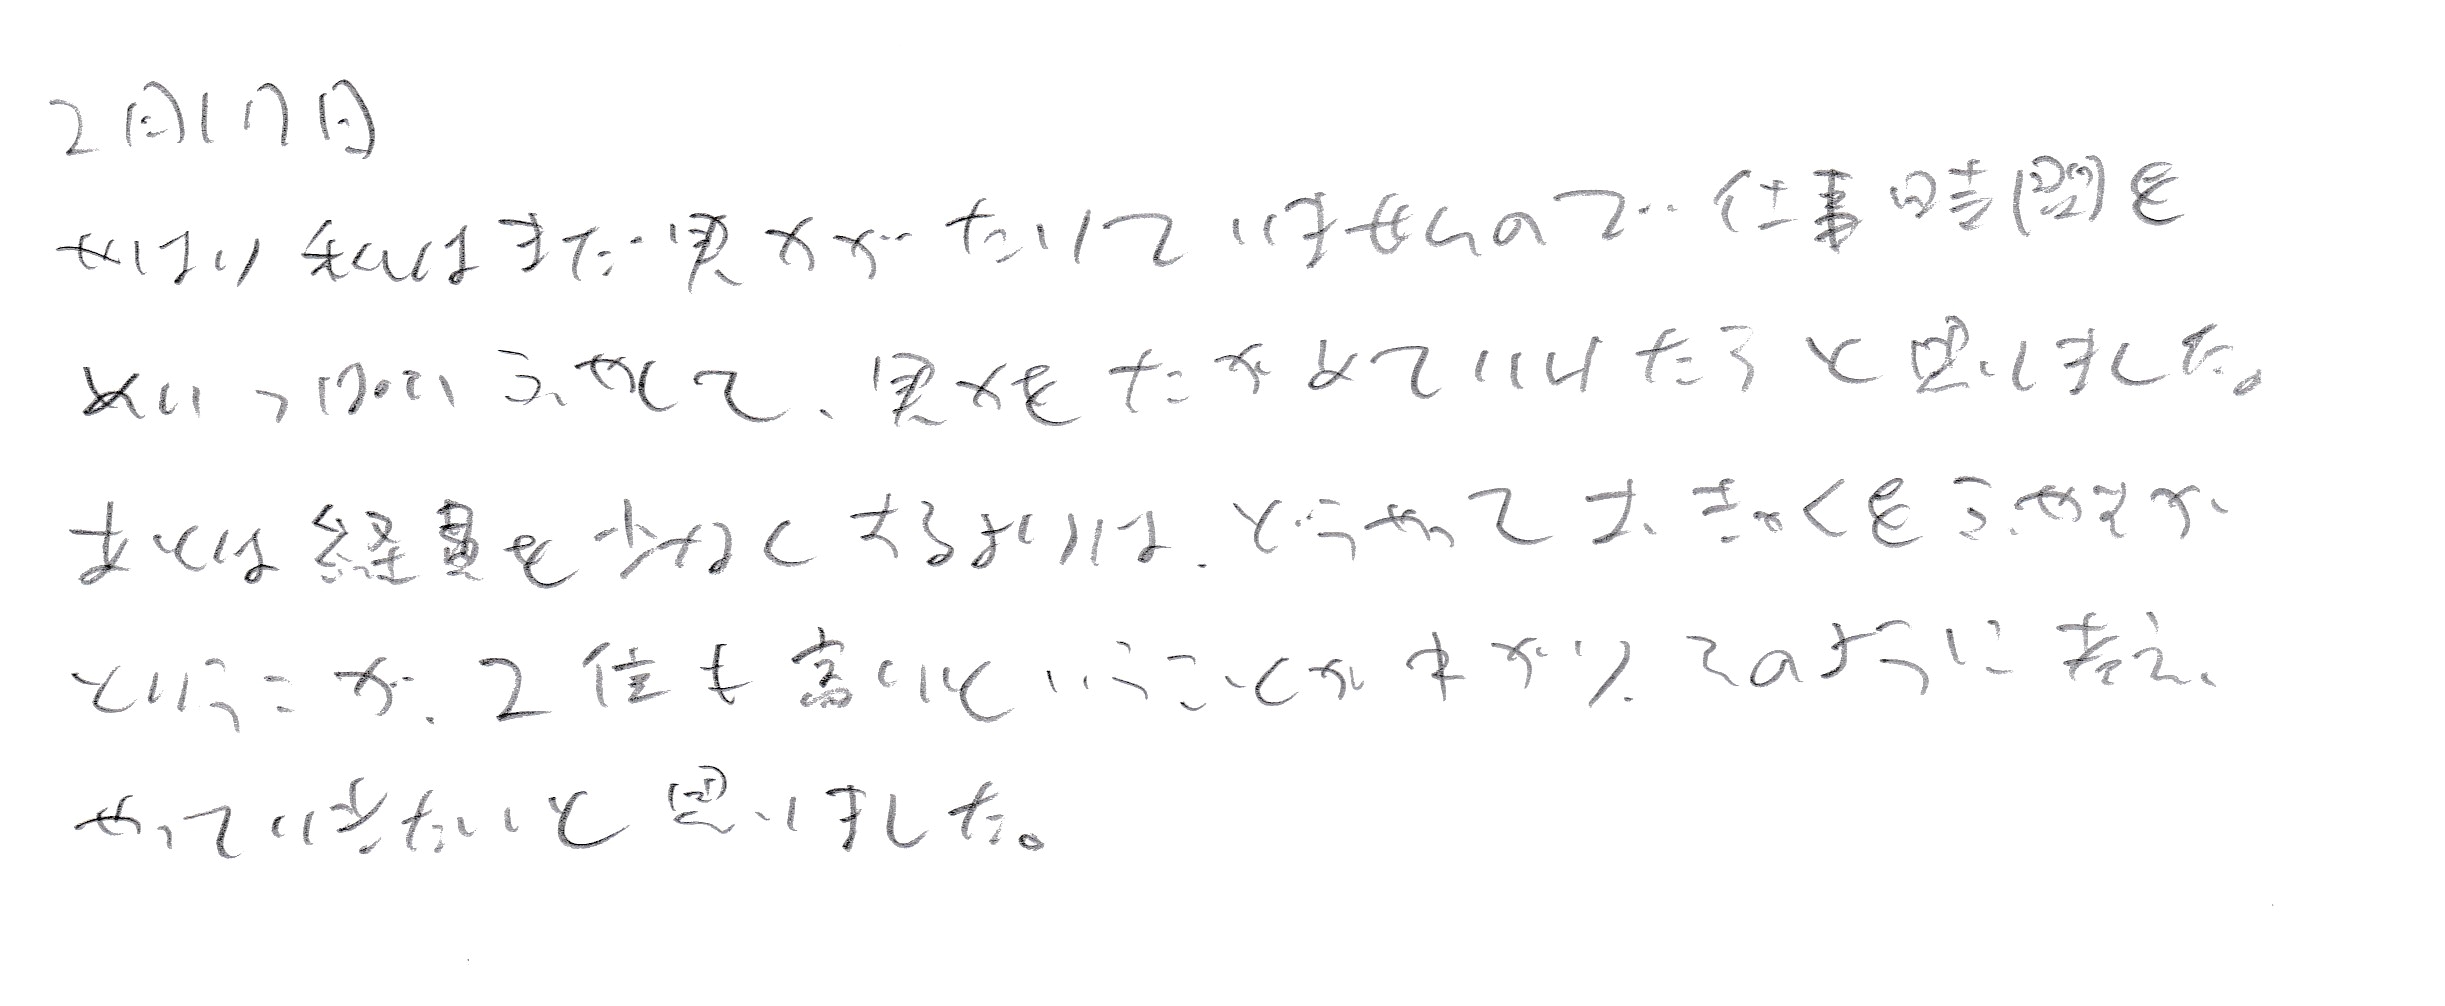 2月17日
やはり私はまだ実力がたりていませんので仕事時間を
めいっぱいふやして、実力をたかめていけたらと思いました。
あとは経費を少なくするよりは、どうやってお、きゃくをふやすか
というこが、2倍も高いということがわかり、そのように考え、
やっていきたいと思いました。